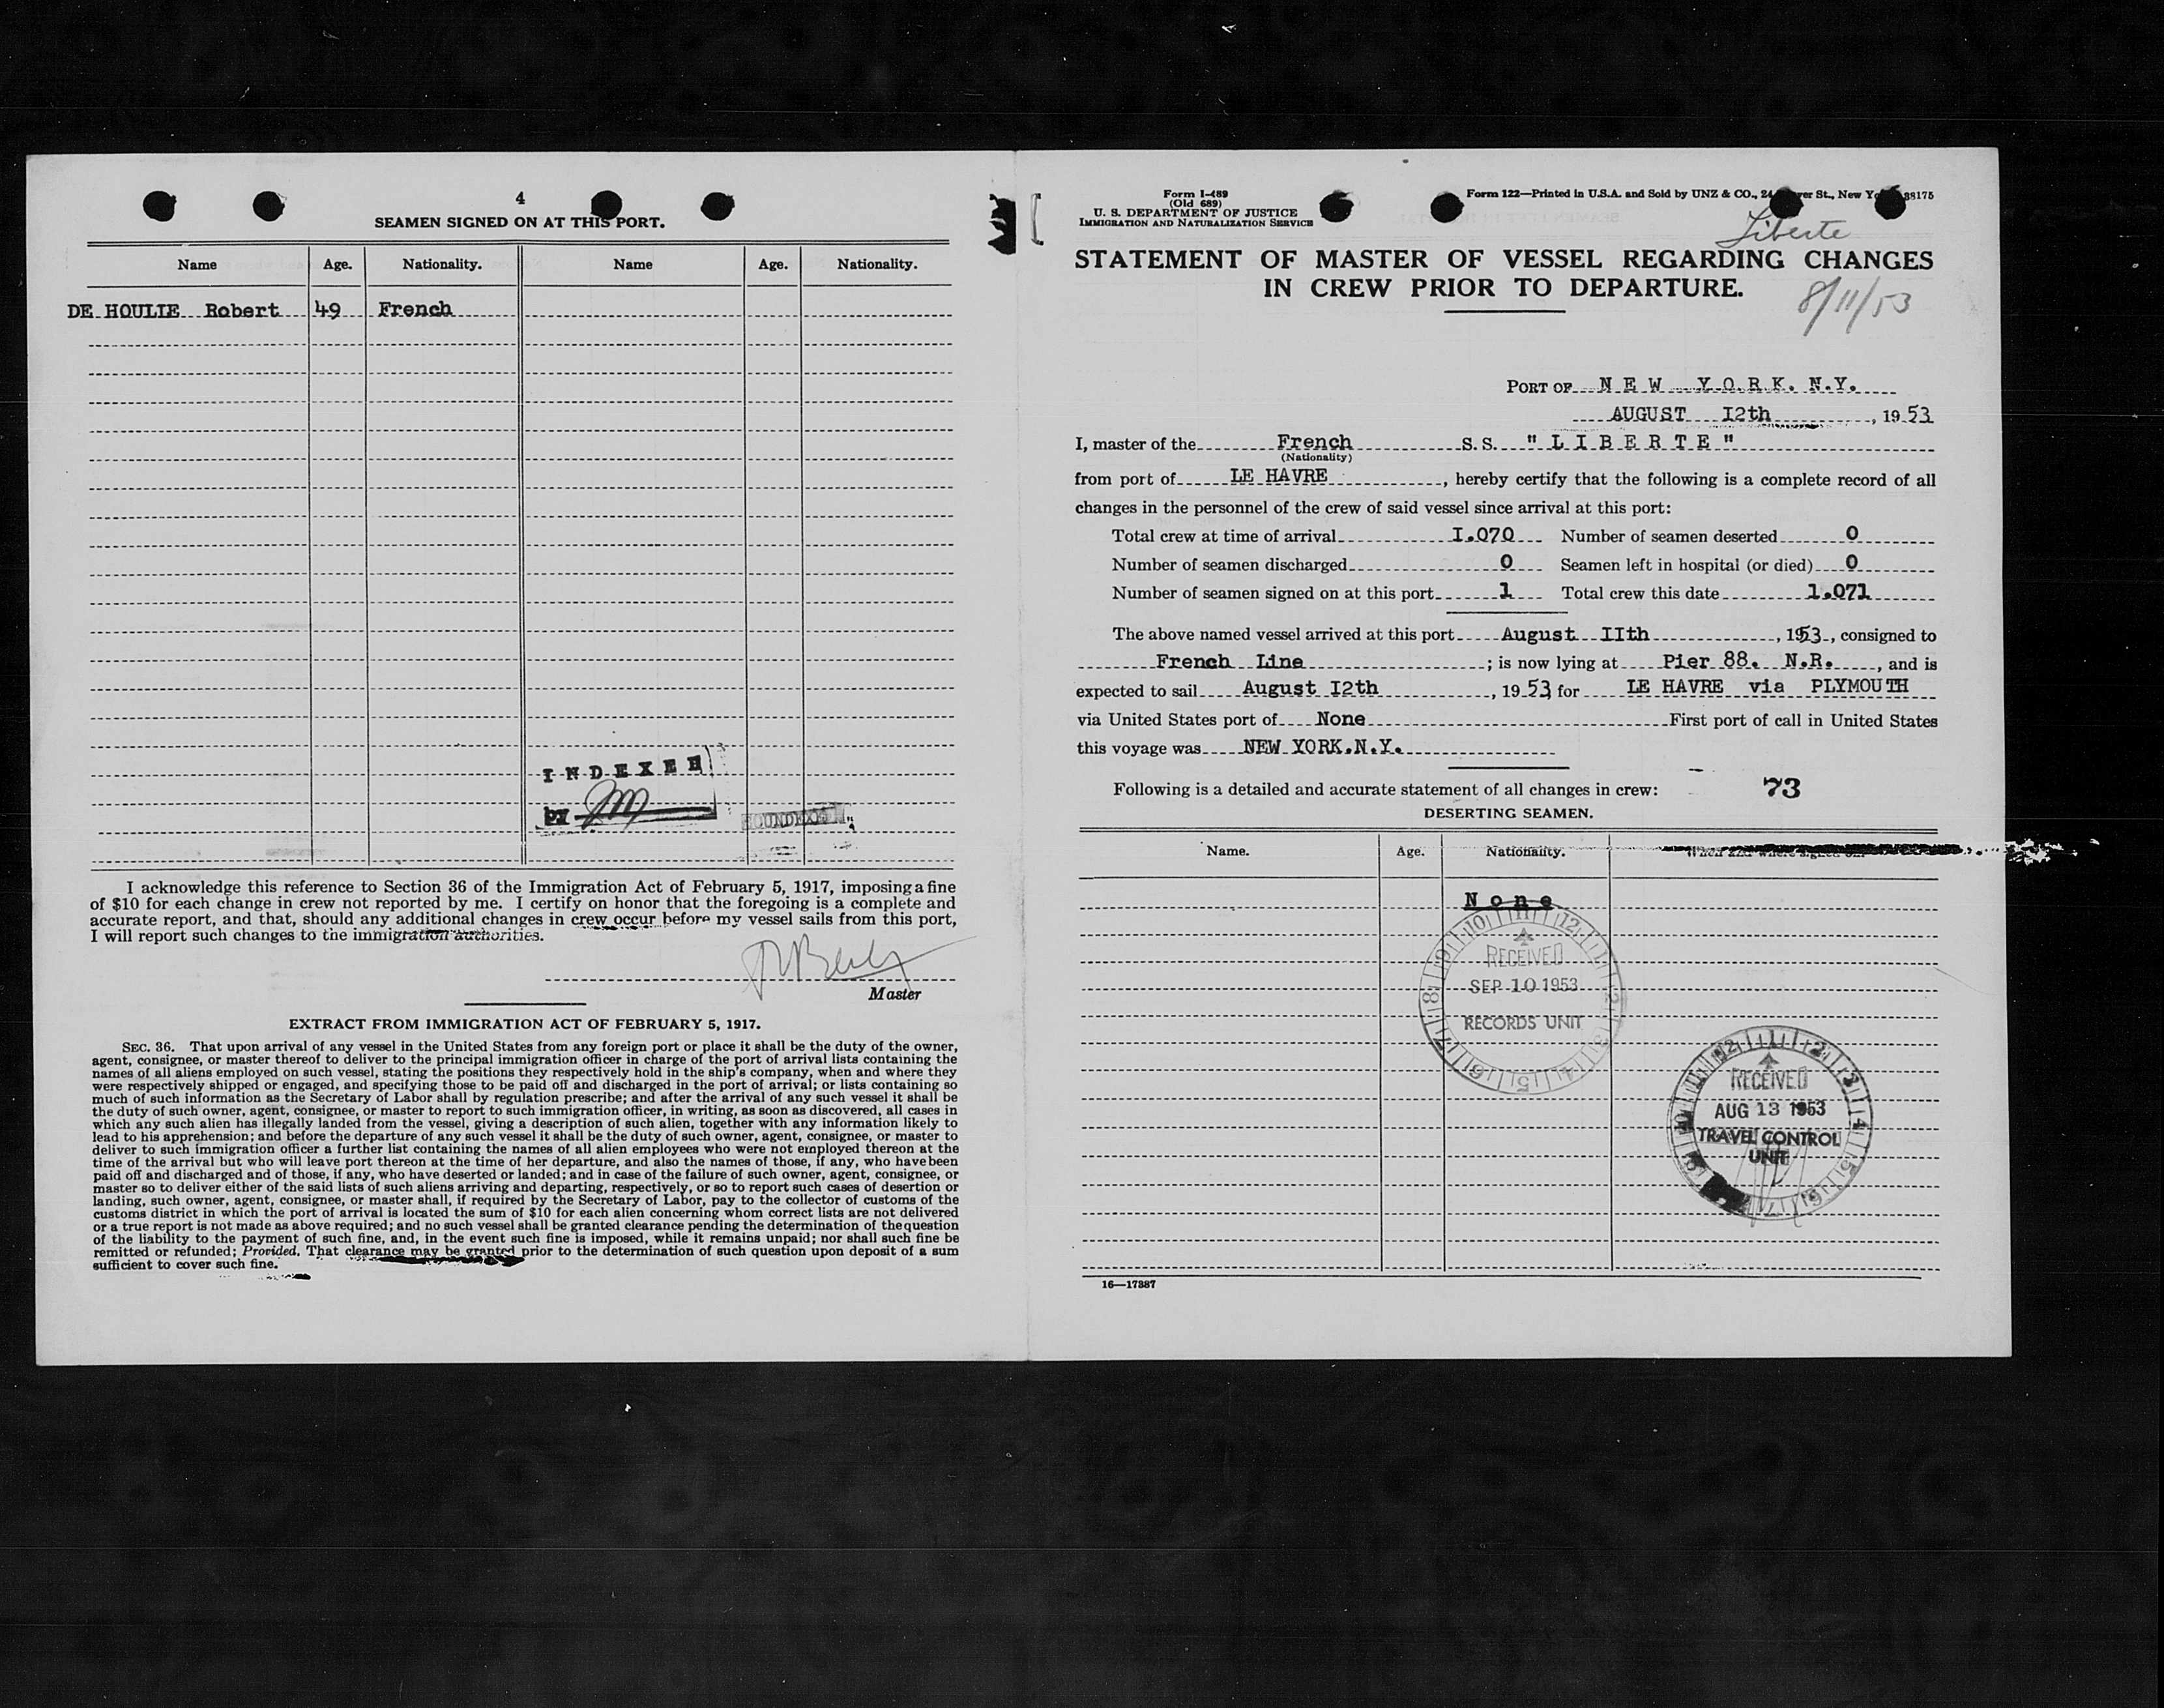 4
SEAMEN SIGNED ON AT THIS PORT.
Name Age. Nationality. Name Age. Nationality.
DE HOULIE Robert 49 French
INDEXED
BY
I acknowledge this reference to Section 36 of the Immigration Act of February 5, 1917, imposing a fine
of $10 for each change in crew not reported by me. I certify on honor that the foregoing is a complete and
accurate report, and that, should any additional changes in crew occur before my vessel sails from this port,
I will report such changes to the immigration authorities.
Master
EXTRACT FROM IMMIGRATION ACT OF FEBRUARY 5, 1917.
SEC. 36. That upon arrival of any vessel in the United States from any foreign port or place it shall be the duty of the owner,
agent, consignee, or master thereof to deliver to the principal immigration officer in charge of the port of arrival lists containing the
names of all aliens employed on such vessel, stating the positions they respectively hold in the ship's company, when and where they
were respectively shipped or engaged, and specifying those to be paid off and discharged in the port of arrival; or lists containing so
much of such information as the Secretary of Labor shall by regulation prescribe; and after the arrival of any such vessel it shall be
the duty of such owner, agent, consignee, or master to report to such immigration officer, in writing, as soon as discovered, all cases in
which any such alien has illegally landed from the vessel, giving a description of such alien, together with any information likely to
lead to his apprehension; and before the departure of any such vessel it shall be the duty of such owner, agent, consignee, or master to
deliver to such immigration officer a further list containing the names of all alien employees who were not employed thereon at the
time of the arrival but who will leave port thereon at the time of her departure, and also the names of those, if any, who have been
paid off and discharged and of those, if any, who have deserted or landed; and in case of the failure of such owner, agent, consignee, or
master so to deliver either of the said lists of such aliens arriving and departing, respectively, or so to report such cases of desertion or
landing, such owner, agent, consignee, or master shall, if required by the Secretary of Labor, pay to the collector of customs of the
customs district in which the port of arrival is located the sum of $10 for each alien concerning whom correct lists are not delivered
or a true report is not made as above required; and no such vessel shall be granted clearance pending the determination of the question
of the liability to the payment of such fine, and, in the event such fine is imposed, while it remains unpaid; nor shall such fine be
remitted or refunded; Provided, That clearance may be granted prior to the determination of such question upon deposit of a sum
sufficient to cover such fine.
Form I-489
(Old 689)
U. S. DEPARTMENT OF JUSTICE
IMMIGRATION AND NATURALIZATION SERVICE
Form 122—Printed in U.S.A. and Sold by UNZ & CO., 24 St., New 38175
Liberte
STATEMENT OF MASTER OF VESSEL REGARDING CHANGES
IN CREW PRIOR TO DEPARTURE.
8/11/53
PORT OF NEW YORK. N.Y.
AUGUST I2th, 1953
I, master of the French S. S. "LIBERTE"
(Nationality)
from port of LE HAVRE, hereby certify that the following is a complete record of all
changes in the personnel of the crew of said vessel since arrival at this port:
Total crew at time of arrival I.070 Number of seamen deserted 0
Number of seamen discharged 0 Seamen left in hospital (or died) 0
Number of seamen signed on at this port 1 Total crew this date 1.071
The above named vessel arrived at this port August IIth, 1953, consigned to
French Line; is now lying at Pier 88. N.R., and is
expected to sail August I2th, 1953 for LE HAVRE via PLYMOUTH
via United States port of None First port of call in United States
this voyage was NEW YORK.N.Y.
Following is a detailed and accurate statement of all changes in crew: 73
DESERTING SEAMEN.
Name. Age. Nationality.
None
RECEIVED
SEP 10 1953
RECORDS UNIT
RECEIVED
AUG 13 1953
TRAVEL CONTROL
UNIT
16—17887